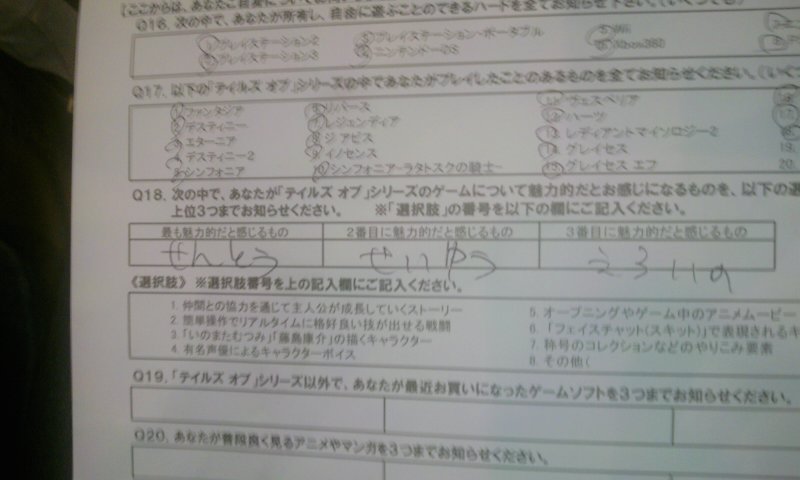 【ここからは、あなたご自身
Q16. 次の中で、あなたが所有し、自由に遊ぶことのできるハードを全てお知らせ下さい。(いくつでも)
プレイステーション2 プレイステーション・ポータブル Wii
プレイステーション3 ニンテンドーDS Xbox360
Q17. 以下の「テイルズ オブ」シリーズの中であなたがプレイしたことのあるものを全てお知らせください。(いくつ
1 ファンタジア 6 リバース 11 ヴェスペリア
2 デスティニー 7 レジェンディア 12 ハーツ
3 エターニア 8 ジ アビス 13 レディアントマイソロジー2
4 デスティニー2 9 イノセンス 14 グレイセス 19.
5 シンフォニア 10 シンフォニア-ラタトスクの騎士- 15 グレイセス エフ 20.
Q18. 次の中で、あなたが「テイルズ オブ」シリーズのゲームについて魅力的だとお感じになるものを、以下の選
上位3つまでお知らせください。 ※「選択肢」の番号を以下の欄にご記入ください。
最も魅力的だと感じるもの 2番目に魅力的だと感じるもの 3番目に魅力的だと感じるもの
せんとう せいゆう
《選択肢》 ※選択肢番号を上の記入欄にご記入ください。
1. 仲間との協力を通じて主人公が成長していくストーリー 5. オープニングやゲーム中のアニメムービー
2. 簡単操作でリアルタイムに格好良い技が出せる戦闘 6. 「フェイスチャット(スキット)」で表現されるキ
3. 「いのまたむつみ」「藤島康介」の描くキャラクター 7. 称号のコレクションなどのやりこみ要素
4. 有名声優によるキャラクターボイス 8. その他(
Q19. 「テイルズ オブ」シリーズ以外で、あなたが最近お買いになったゲームソフトを3つまでお知らせください。
Q20. あなたが普段良く見るアニメやマンガを3つまでお知らせください。